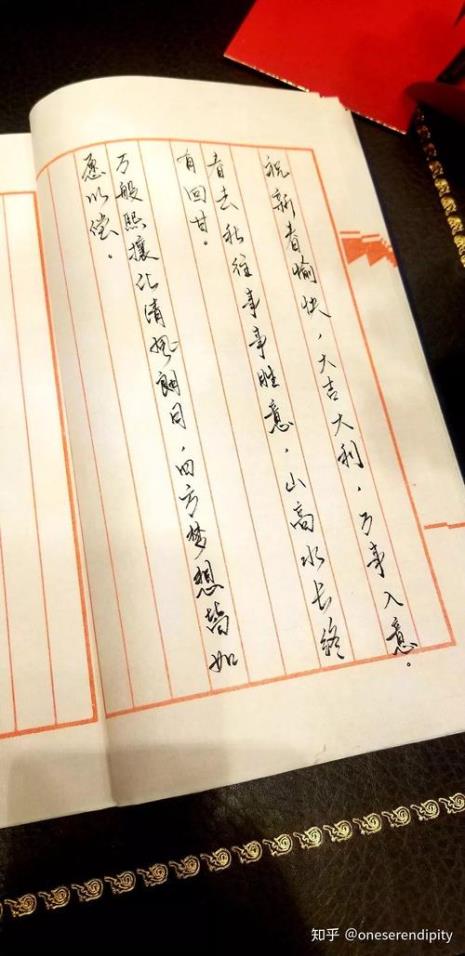 祝新春愉快，大吉大利，万事入意。
春去秋往事事胜意，山高水长终
有回甘。
万般熙攘化清风朗日，四方梦想皆如
愿以偿。
知乎 @oneserendipity